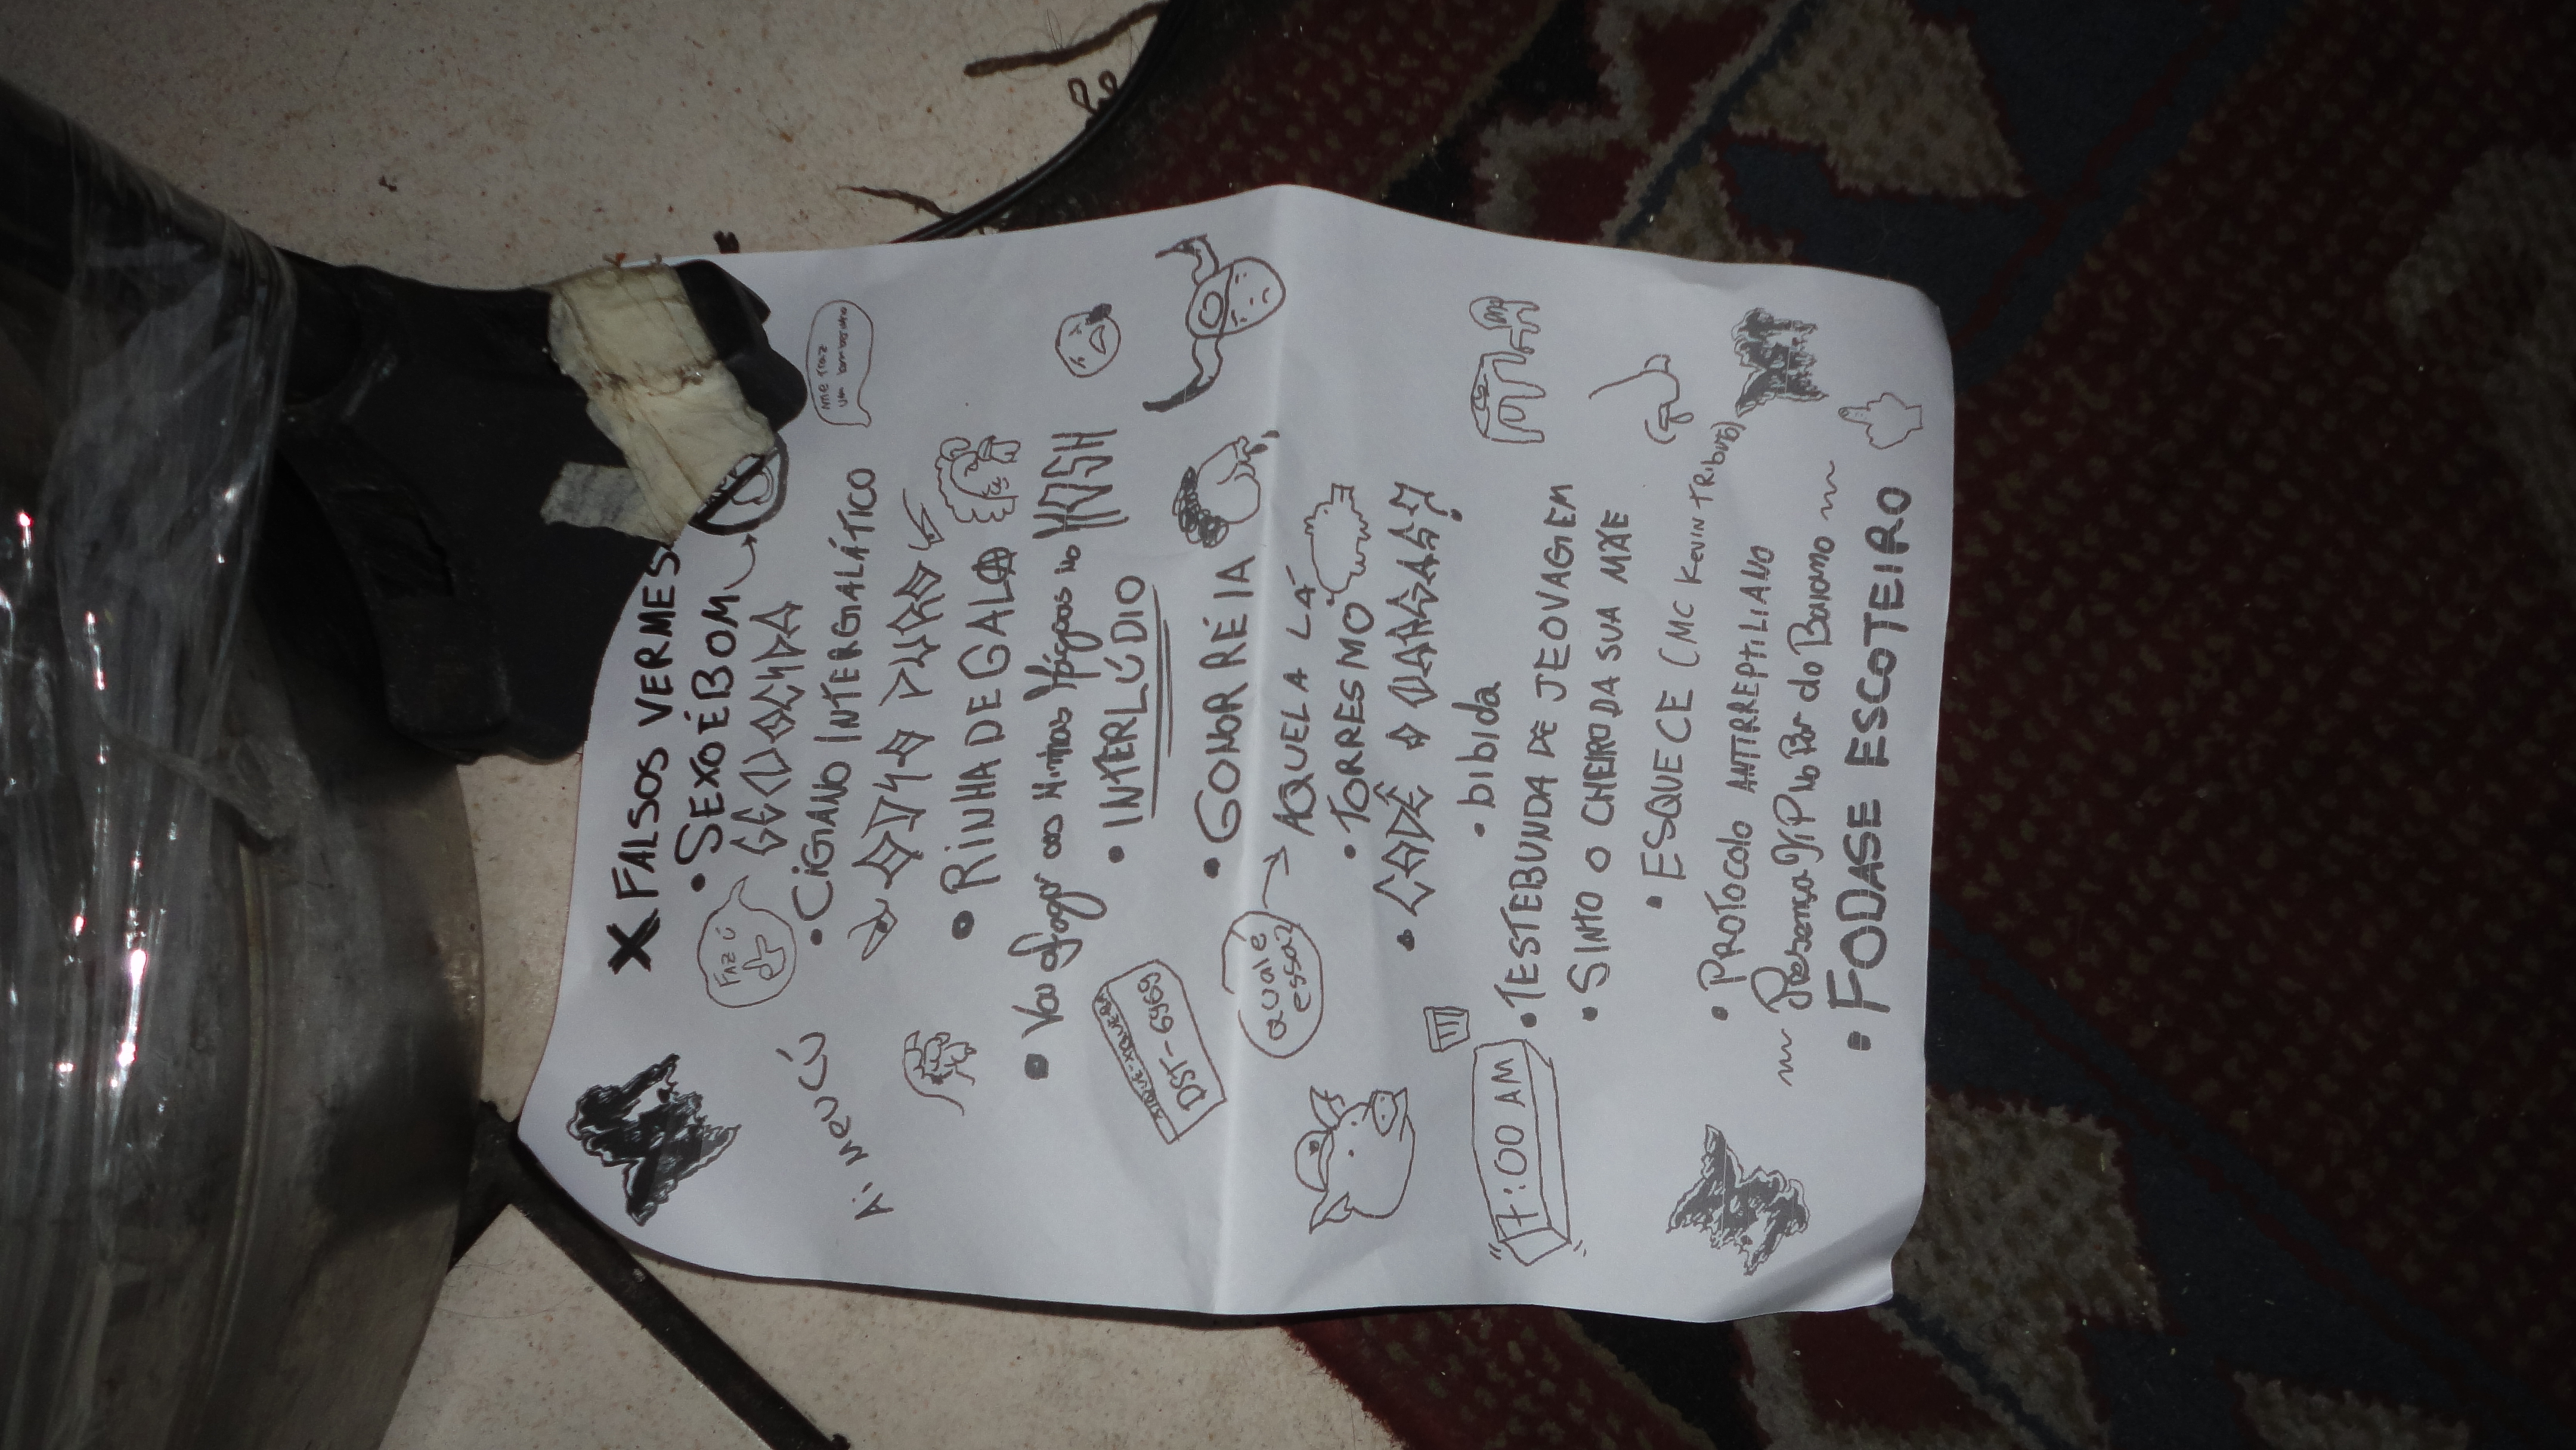 X FALSOS VERMES
• SEXO É BOM
FAZ Ú
GENOCIDA
• CIGANO INTERGALÁTICO
me traz
um
Ai MEU CÚ
ODIO PURO
• RINHA DE GALA
• Vou afogar as Minhas Mágoas no MOSH
• INTERLÚDIO
XIQUE-XIQUE-BA
DST-6969
• GONORRÉIA
QUAL É
essa?
AQUELA LÁ
• TORRESMO
• CADÊ O VARGAS?
• bibida
7:00 AM
• TESTEBUNDA DE JEOVAGEM
• SINTO O CHEIRO DA SUA MÃE
• ESQUECE (MC KEVIN TRIBUTO)
• PROTOCOLO ANTIRREPTILIANO
DST
Presença ViP No Bar do Baiano
• FODASE ESCOTEIRO